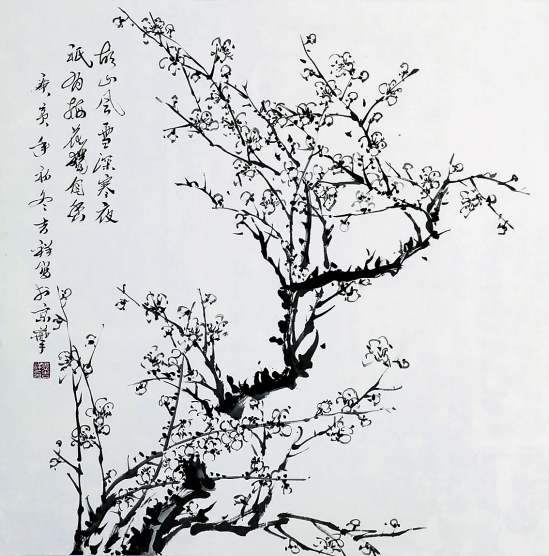 故山风雪深寒夜
祇有梅花独自香
庚寅年初冬吉祥写於京华